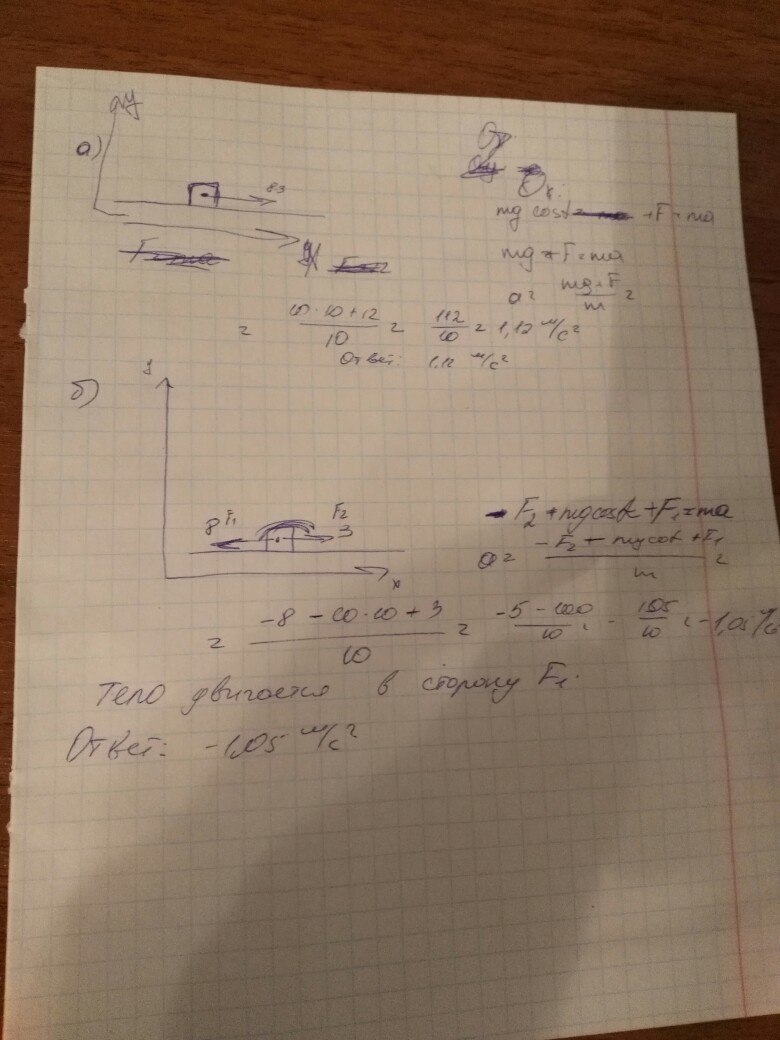 y
а)
83
x
Ox:
mg cosα + F = ma
mg + F = ma
a = mg + F / m =
= 10·10+12 / 10 = 112 / 10 = 1,12 м/с²
Ответ: 1,12 м/с²
б)
y
8 F₁ F₂ 3
x
- F₂ + mg cosα + F₁ = ma
a = -F₂ + mg cosα + F₁ / m =
= -8 - 10·10 + 3 / 10 = -5 - 100 / 10 = - 105 / 10 = -1,05 м/с
Тело двигается в сторону F₁.
Ответ: -1,05 м/с²